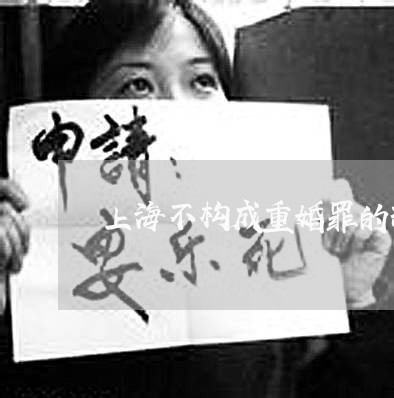 申請：
上海不构成重婚罪的
安乐死